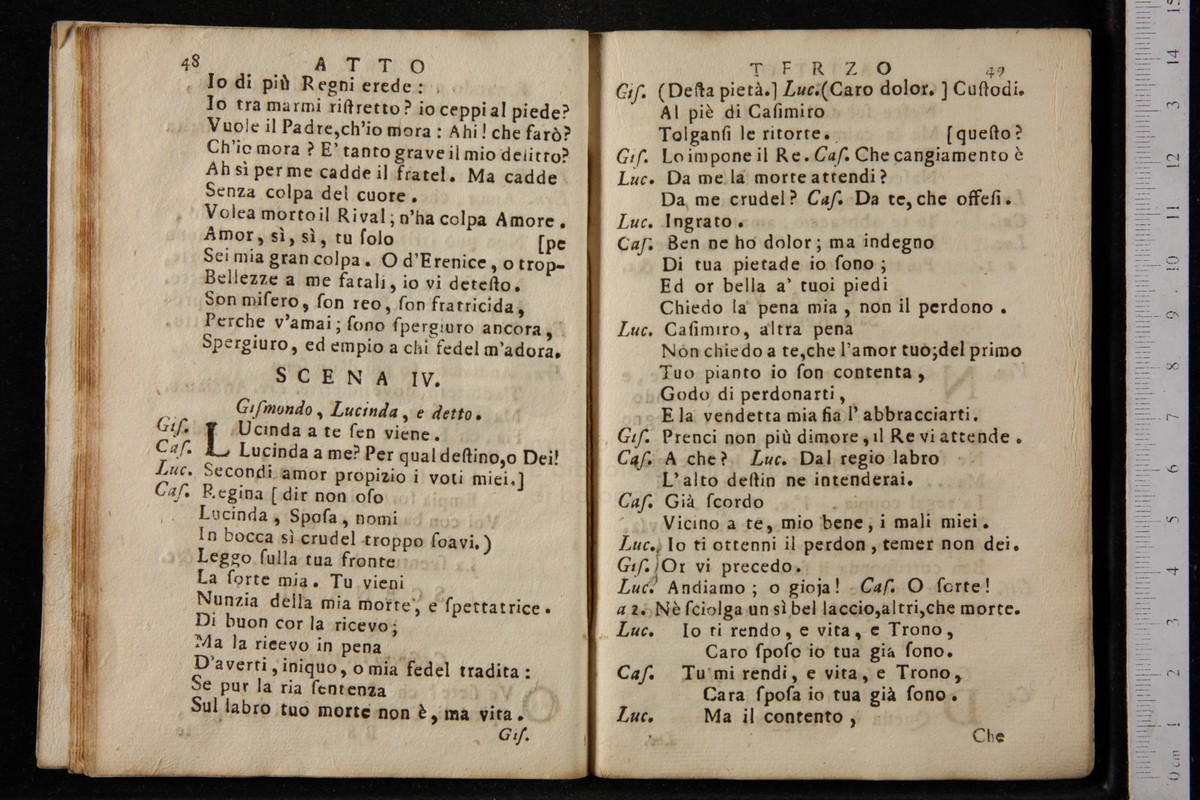 48 ATTO
Io di più Regni erede :
Io tra marmi riſtretto? io ceppi al piede?
Vuole il Padre,ch'io mora : Ahi! che farò?
Ch'io mora ? E' tanto grave il mio delitto?
Ah sì per me cadde il fratel. Ma cadde
Senza colpa del cuore .
Volea morto il Rival; n'ha colpa Amore .
Amor, sì, sì, tu ſolo [pe
Sei mia gran colpa. O d'Erenice, o trop-
Bellezze a me fatali, io vi deteſto.
Son miſero, ſon reo, ſon fratricida,
Perche v'amai; ſono ſpergiuro ancora,
Spergiuro, ed empio a chi fedel m'adora.
SCENA IV.
Giſmondo, Lucinda, e detto.
Giſ. LUcinda a te ſen viene.
Caſ. Lucinda a me? Per qual deſtino,o Dei!
Luc. Secondi amor propizio i voti miei.]
Caſ. Regina [ dir non oſo
Lucinda, Spoſa, nomi
In bocca sì crudel troppo ſoavi.)
Leggo ſulla tua fronte
La ſorte mia. Tu vieni
Nunzia della mia morte, e ſpettatrice.
Di buon cor la ricevo;
Ma la ricevo in pena
D'averti, iniquo, o mia fedel tradita :
Se pur la ria ſentenza
Sul labro tuo morte non è, ma vita.
Giſ.
TERZO 49
Giſ. (Deſta pietà.] Luc.(Caro dolor. ] Cuſtodi.
Al piè di Caſimiro
Tolganſi le ritorte. [queſto?
Giſ. Lo impone il Re. Caſ. Che cangiamento è
Luc. Da me la morte attendi?
Da me crudel? Caſ. Da te, che offeſi.
Luc. Ingrato.
Caſ. Ben ne ho dolor; ma indegno
Di tua pietade io ſono;
Ed or bella a' tuoi piedi
Chiedo la pena mia, non il perdono.
Luc. Caſimiro, altra pena
Non chiedo a te,che l'amor tuo;del primo
Tuo pianto io ſon contenta,
Godo di perdonarti,
E la vendetta mia ſia l' abbracciarti.
Giſ. Prenci non più dimore, il Re vi attende .
Caſ. A che? Luc. Dal regio labro
L'alto deſtin ne intenderai.
Caſ. Già ſcordo
Vicino a te, mio bene, i mali miei.
Luc. Io ti ottenni il perdon, temer non dei.
Giſ. Or vi precedo.
Luc. Andiamo; o gioja! Caſ. O ſorte!
a 2. Nè ſciolga un sì bel laccio,altri,che morte.
Luc. Io ti rendo, e vita, e Trono,
Caro ſpoſo io tua già ſono.
Caſ. Tu mi rendi, e vita, e Trono,
Cara ſpoſa io tua già ſono.
Luc. Ma il contento,
Che
15
14
13
12
11
10
9
8
7
6
5
4
3
2
1
0 cm